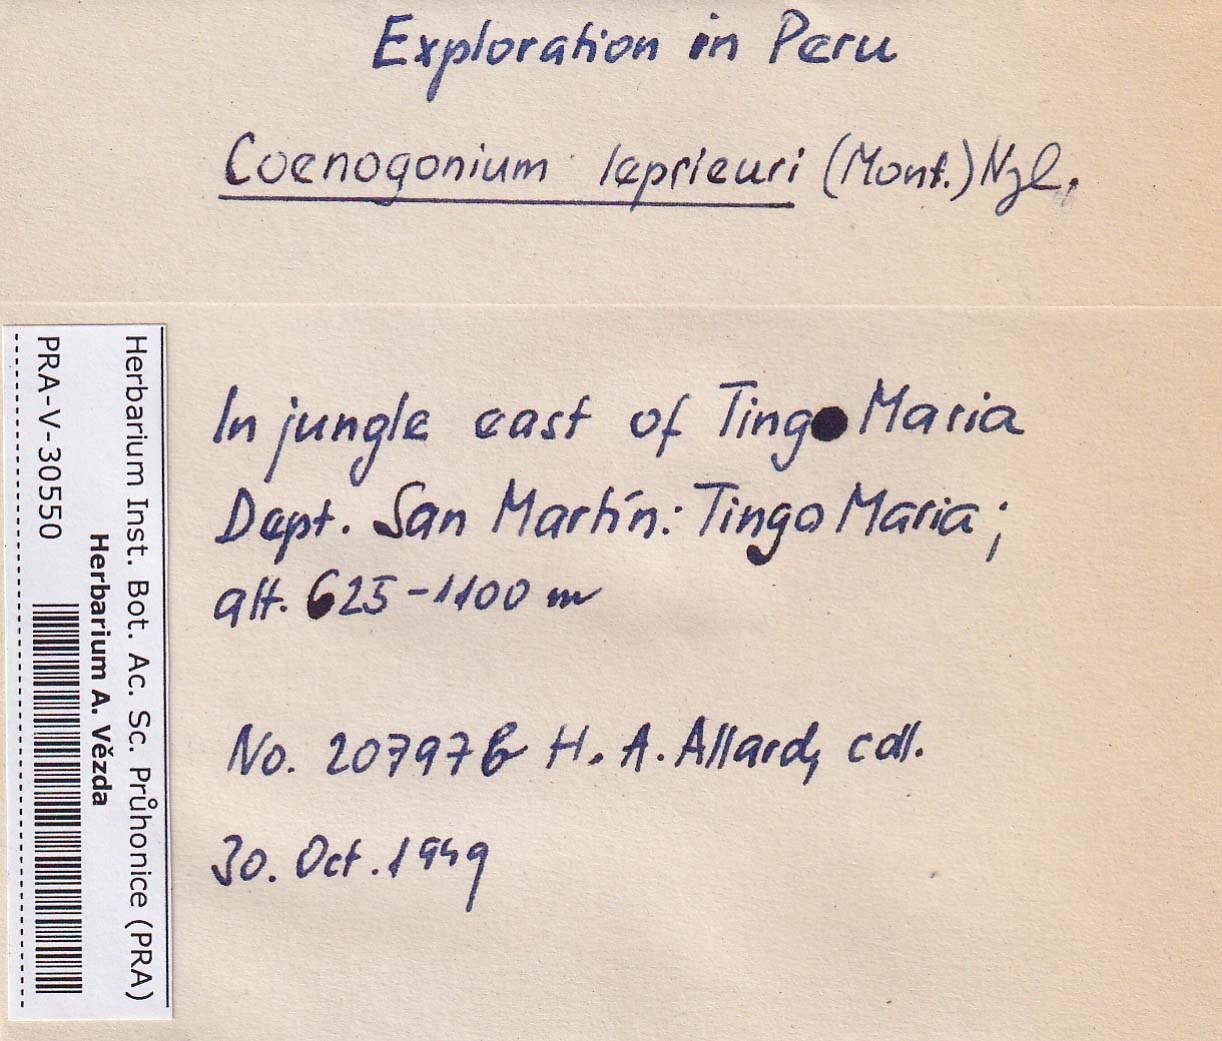 Exploration in Peru
Coenogonium leprieuri (Mont.) Nyl.
In jungle east of Tingo Maria
Dept. San Martín: Tingo Maria;
alt. 625-1100 m
No. 20797b H. A. Allard, coll.
30. Oct. 1949
Herbarium Inst. Bot. Ac. Sc. Průhonice (PRA)
Herbarium A. Vězda
PRA-V-30550